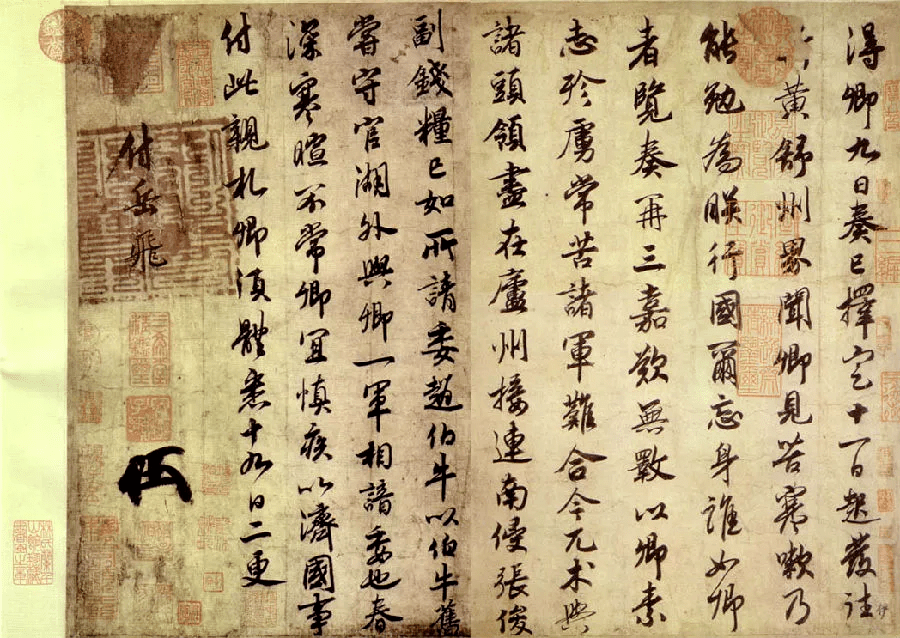 得卿九日奏已擇定十一日起發往
蘄黃舒州界聞卿見苦寒嗽乃
能勉為朕行國爾忘身誰如卿
者覽奏再三嘉歎無斁以卿素
志殄虜常苦諸軍難合今兀朮與
諸頭領盡在廬州接連南侵張俊
副錢糧已如所請委趙伯牛以伯牛舊
嘗守官湖外與卿一軍相諳委也春
深寒暄不常卿宜慎疾以濟國事
付此親札卿須體悉十九日二更
付岳飛